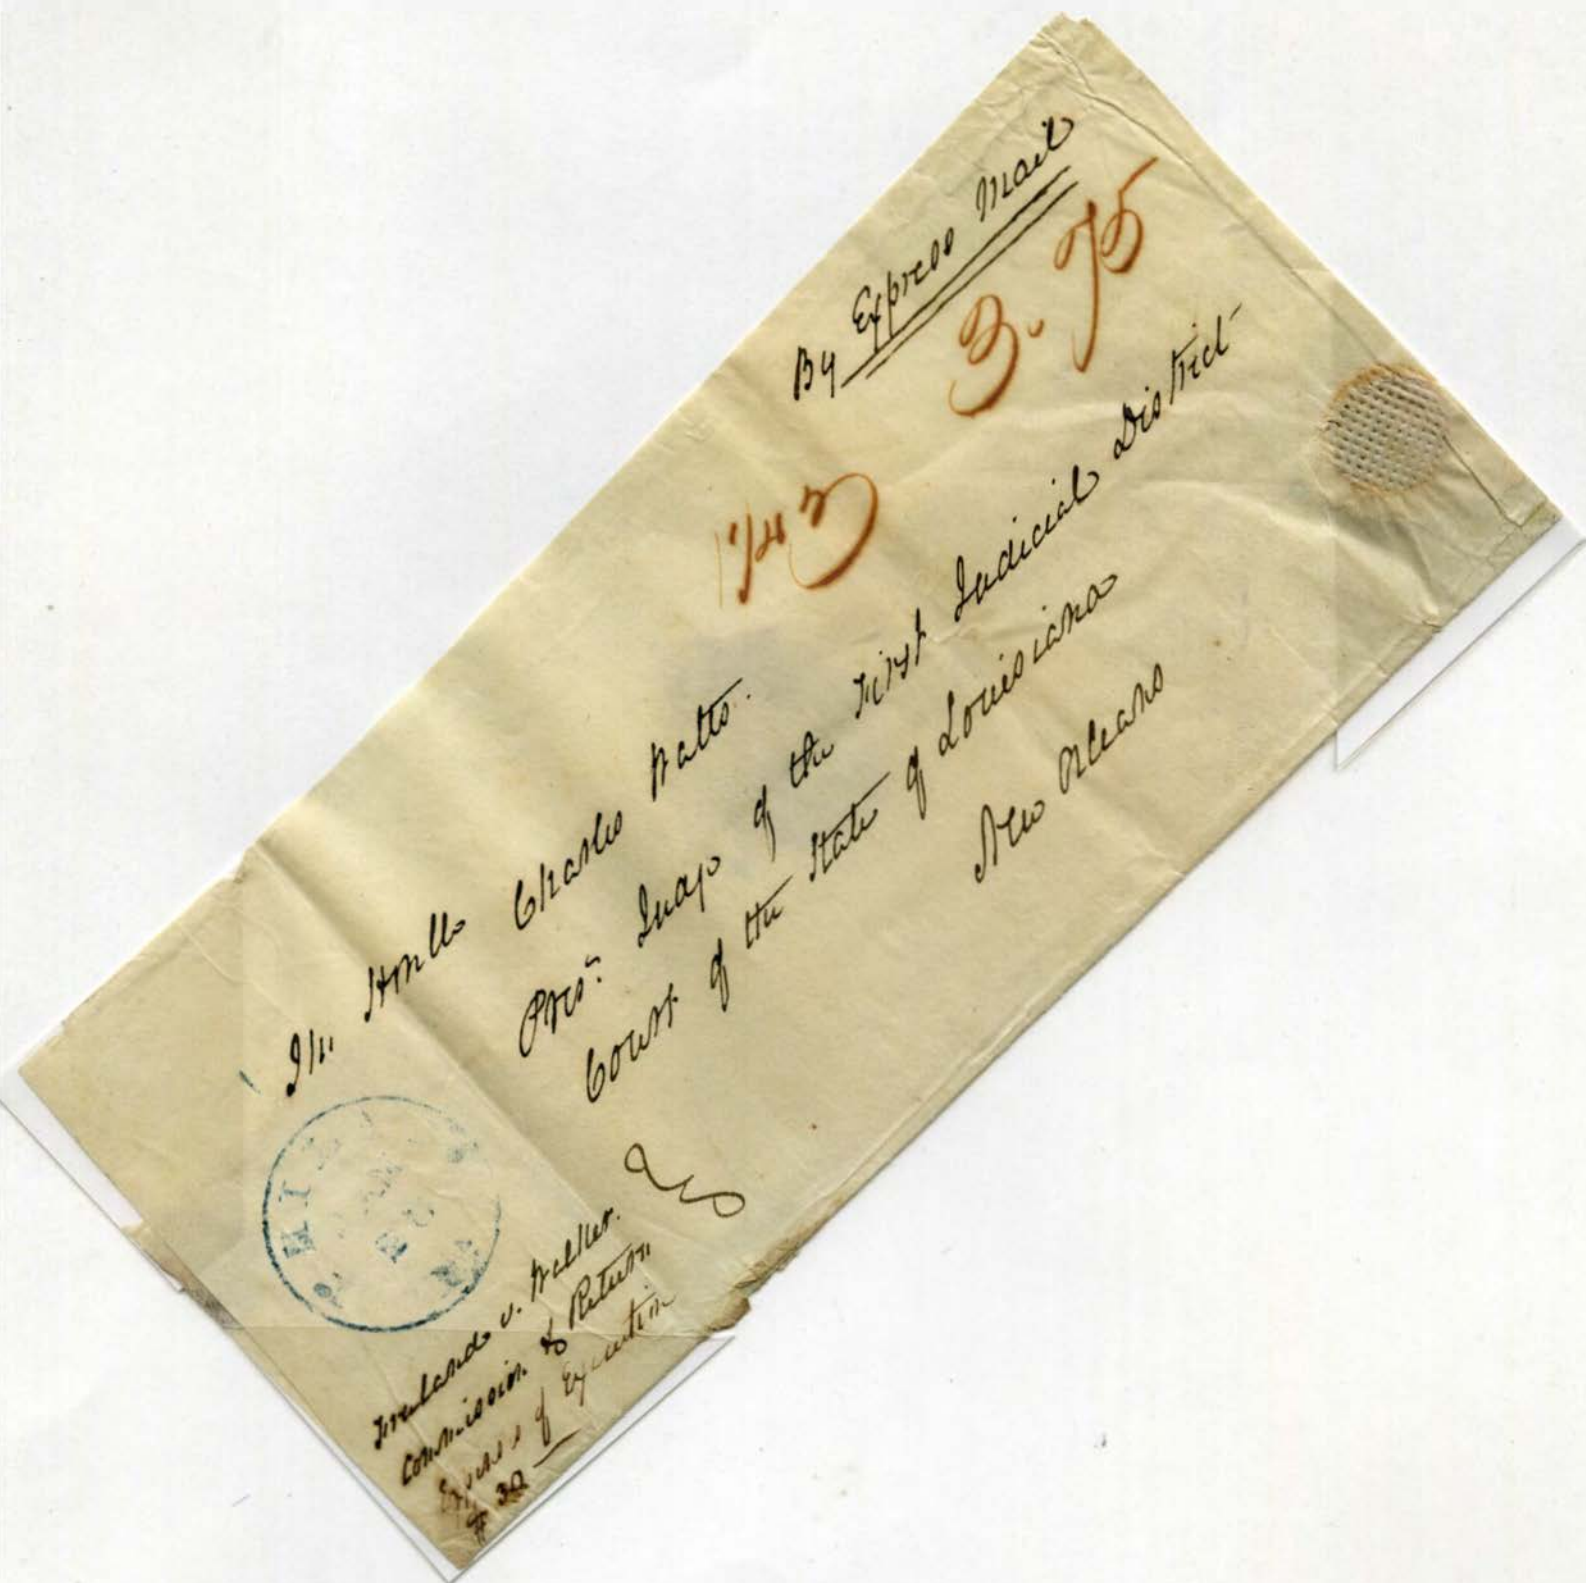 By Express Mail
3.75
The Honble Charles Watts.
Pres. Judge of the First Judicial District
Court of the State of Louisiana
New Orleans
JAN
20
Freeland v. Walker.
Commission & Return
Expenses of Execution
$30